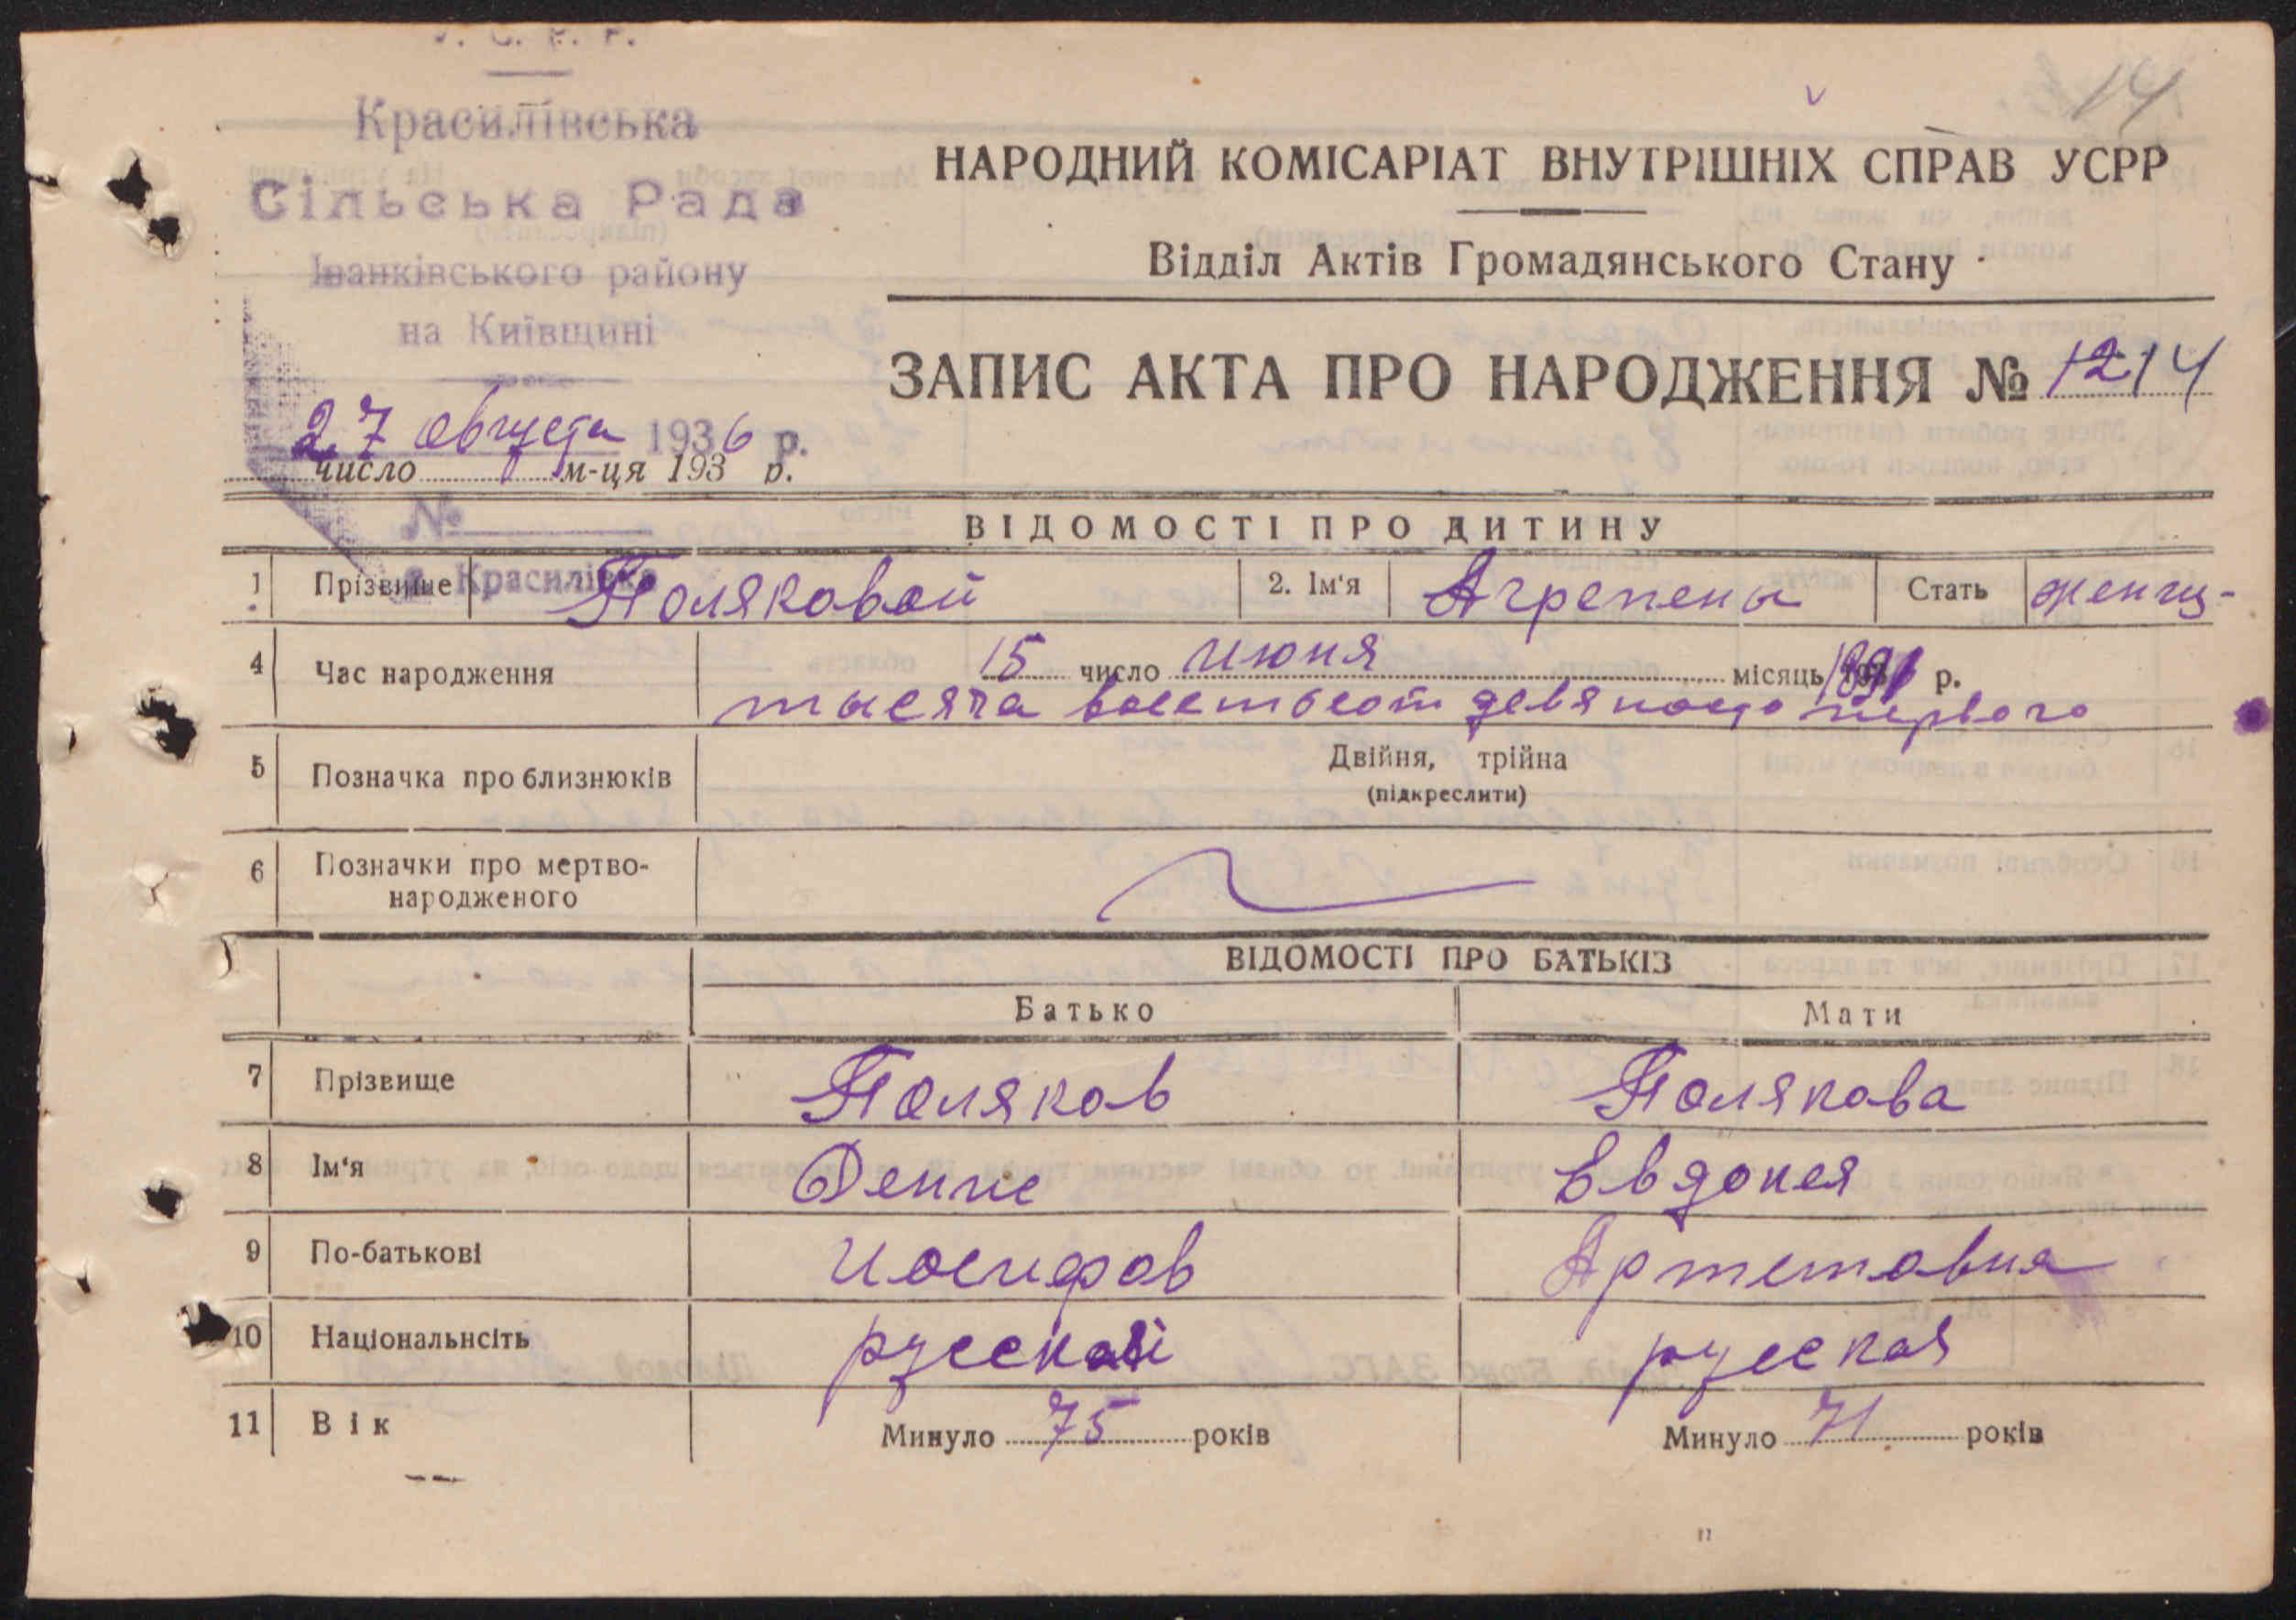 У. С. Р. Р.
14
Красилівська
Сільська Рада
Іванківського району
на Київщині
НАРОДНИЙ КОМІСАРІАТ ВНУТРІШНІХ СПРАВ УСРР
Відділ Актів Громадянського Стану
ЗАПИС АКТА ПРО НАРОДЖЕННЯ № 1214
27 августа 1936 р.
число м-ця 193 р.
№
с. Красилівка
ВІДОМОСТІ ПРО ДИТИНУ
1 Прізвище Поляковой 2. Ім'я Агрепены Стать женщ-
4 Час народження 15 число июня місяць 1891 р.
тысяча восемьсот девяносто первого
5 Позначка про близнюків Двійня, трійна
(підкреслити)
6 Позначки про мертво-
народженого
ВІДОМОСТІ ПРО БАТЬКІВ
Батько Мати
7 Прізвище Поляков Полякова
8 Ім'я Денис Евдокея
9 По-батькові Иосифов Артемовна
10 Національнсіть русский русская
11 Вік Минуло 75 років Минуло 71 років